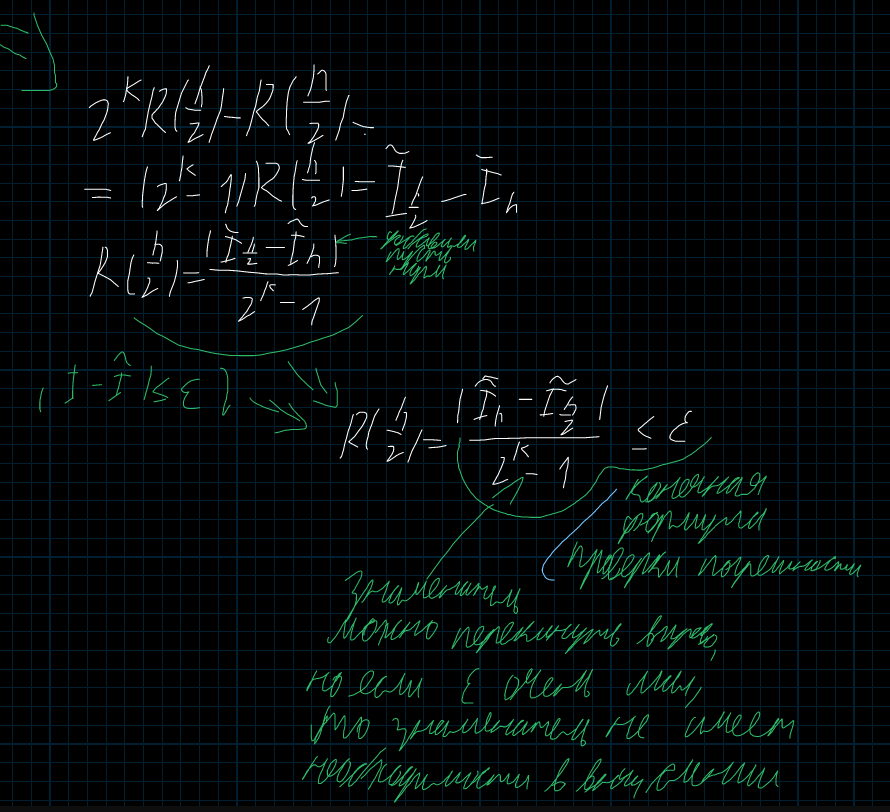 2^K R(h/2) - R(h/2) =
= (2^K - 1)R(h/2) = Ĩ_{h/2} - Ĩ_h
R(h/2) = |Ĩ_{h/2} - Ĩ_h| / (2^K - 1)
пусть
|I - Ĩ| ≤ ε
R(h/2) = |Ĩ_h - Ĩ_{h/2}| / (2^K - 1) ≤ ε
конечная
формула
проверки погрешности
Знаменатель
можно перекинуть вправо,
но если ε очень мал,
то знаменатель не имеет
необходимости в вычислении